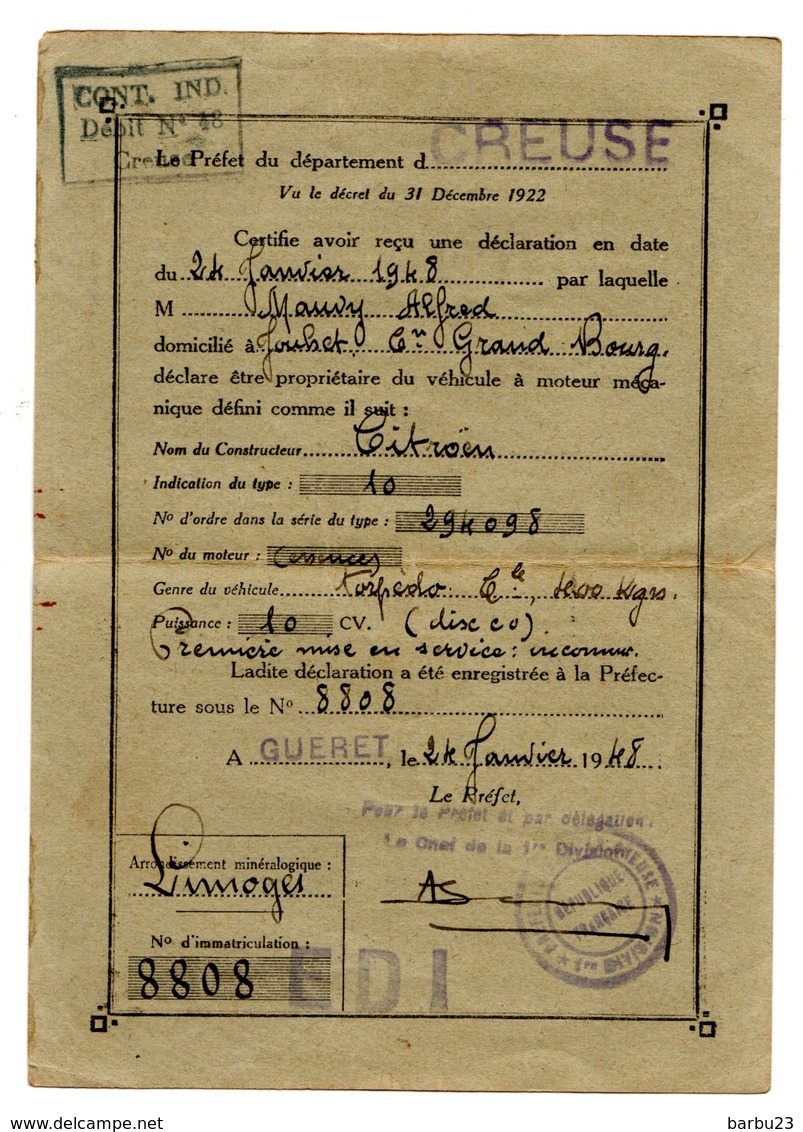 CONT. IND.
Débit Nº 48
Creuse
Le Préfet du département d CREUSE
Vu le décret du 31 Décembre 1922
Certifie avoir reçu une déclaration en date
du 24 Janvier 1948 par laquelle
M Mauvy Alfred
domicilié à Jouhet, Cⁿ Grand Bourg.
déclare être propriétaire du véhicule à moteur méca-
nique défini comme il suit :
Nom du Constructeur Citroën
Indication du type : 10
Nº d'ordre dans la série du type : 294098
Nº du moteur : (essence)
Genre du véhicule torpédo Cˡᵉ, 400 Kgs.
Puissance : 10 CV.
Première mise en service : inconnue.
Ladite déclaration a été enregistrée à la Préfec-
ture sous le Nº 8808
A GUERET, le 24 Janvier 1948.
Le Préfet,
Pour le Préfet et par délégation.
Le Chef de la 1re Division
REPUBLIQUE
FRANÇAISE
Arrondissement minéralogique :
Limoges
Nº d'immatriculation :
8808
EDI
delcampe.net
barbu23